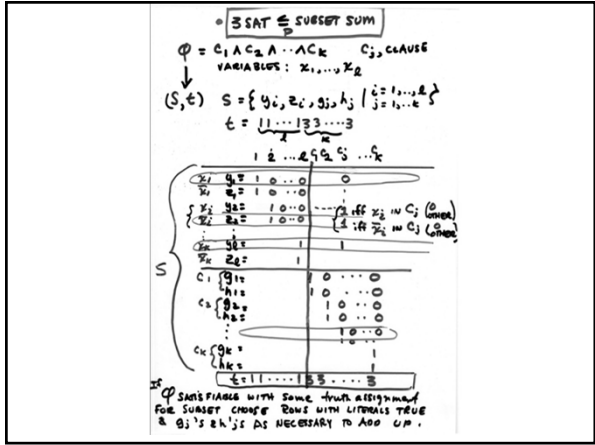 • 3SAT ≤p SUBSET SUM
φ = C1 ∧ C2 ∧ ·· ∧ CK   Cj, CLAUSE
VARIABLES: x1,...,xl
(S,t)   S = { yi, zi, gj, hj | i = 1,..,l j = 1,..k }
t = 11...133....3
l   k
1 2 ...l C1 C2 Cj ...CK
x1 y1 = 1 0 ··0   0
x̄1 z1 = 1 0 ··0
x2 y2 = 1 0··0   1 iff xi IN Cj (0 OTHER)
x̄2 z2 = 1 0··0   1 iff x̄i IN Cj (0 OTHER)
:
xk yl = 1   1
x̄k zl = 1
S
C1 { g1 = 1 0 ··· 0
h1 = 1 0 ··· 0
C2 { g2 = 1 0 ·· 0
h2 = 1 0 ·· 0
:   1 0 ·· 0
CK { gK = 1
hK = 1
t = 11 ····133 ....3
If φ SATISFIABLE WITH some truth assignment
FOR SUBSET CHOOSE ROWS WITH LITERALS TRUE
& gj's & hj's AS NECESSARY TO ADD UP.